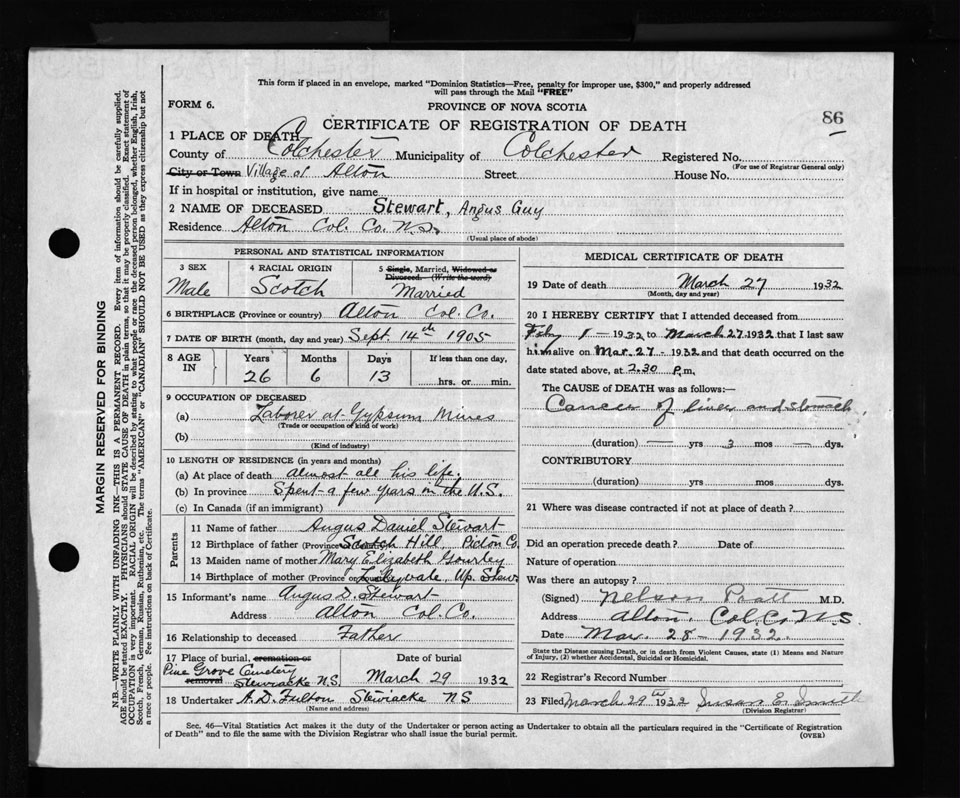 This form if placed in an envelope, marked "Dominion Statistics—Free, penalty for improper use, $300," and properly addressed
will pass through the Mail "FREE"
FORM 6.
PROVINCE OF NOVA SCOTIA
86
CERTIFICATE OF REGISTRATION OF DEATH
1 PLACE OF DEATH
County of Colchester Municipality of Colchester Registered No.
(For use of Registrar General only)
City or Town Village of Alton Street House No.
If in hospital or institution, give name
2 NAME OF DECEASED Stewart, Angus Guy
Residence Alton Col. Co. N.S.
(Usual place of abode)
PERSONAL AND STATISTICAL INFORMATION
3 SEX 4 RACIAL ORIGIN 5 Single, Married, Widowed or
Divorced. (Write the word)
Male Scotch Married
6 BIRTHPLACE (Province or country) Alton Col. Co.
7 DATE OF BIRTH (month, day and year) Sept. 14th 1905
8 AGE IN Years Months Days If less than one day,
26 6 13 hrs. or min.
9 OCCUPATION OF DECEASED
(a) Laborer at Gypsum Mines
(Trade or occupation of kind of work)
(b)
(Kind of industry)
10 LENGTH OF RESIDENCE (in years and months)
(a) At place of death almost all his life.
(b) In province Spent a few years in the U.S.
(c) In Canada (if an immigrant)
Parents
11 Name of father Angus Daniel Stewart
12 Birthplace of father (Province Scotch Hill, Pictou Co.
13 Maiden name of mother Mary Elizabeth Gourley
14 Birthplace of mother (Province or country) Up. Stew.
15 Informant's name Angus D. Stewart
Address Alton Col. Co.
16 Relationship to deceased Father
17 Place of burial, cremation or removal Date of burial
Pine Grove Cemetery
Stewiacke N.S. March 29 1932
18 Undertaker A.D. Fulton Stewiacke NS
(Name and address)
MEDICAL CERTIFICATE OF DEATH
19 Date of death March 27 1932
(Month, day and year)
20 I HEREBY CERTIFY that I attended deceased from
Feby 1 - 1932 to March 27 1932 that I last saw
him alive on Mar. 27 - 1932 and that death occurred on the
date stated above, at 2.30 P.m.
The CAUSE of DEATH was as follows:—
Cancer of liver and stomach
(duration) — yrs 3 mos — dys.
CONTRIBUTORY
(duration) yrs. mos. dys.
21 Where was disease contracted if not at place of death?
Did an operation precede death? Date of
Nature of operation
Was there an autopsy?
(Signed) Nelson Pratt M.D.
Address Alton. Col. Co. N.S
Date Mar. 28 - 1932.
State the Disease causing Death, or in death from Violent Causes, state (1) Means and Nature
of Injury, (2) whether Accidental, Suicidal or Homicidal.
22 Registrar's Record Number
23 Filed March 29th 1932 Susan E. Smith
(Division Registrar)
Sec. 46—Vital Statistics Act makes it the duty of the Undertaker or person acting as Undertaker to obtain all the particulars required in the "Certificate of Registration
of Death" and to file the same with the Division Registrar who shall issue the burial permit.
(OVER)
MARGIN RESERVED FOR BINDING
N.B.—WRITE PLAINLY WITH UNFADING INK—THIS IS A PERMANENT RECORD. Every item of information should be carefully supplied.
AGE should be stated EXACTLY. PHYSICIANS should STATE CAUSE OF DEATH in plain terms, so that it may be properly classified. Exact statement of
OCCUPATION is very important. RACIAL ORIGIN will be described by stating to what people or race the deceased person belonged, whether English, Irish,
Scotch, French, German, Russian, Ruthenian, etc. The terms "AMERICAN" or "CANADIAN" SHOULD NOT BE USED as they express citizenship but not
a race or people. See instructions on back of Certificate.